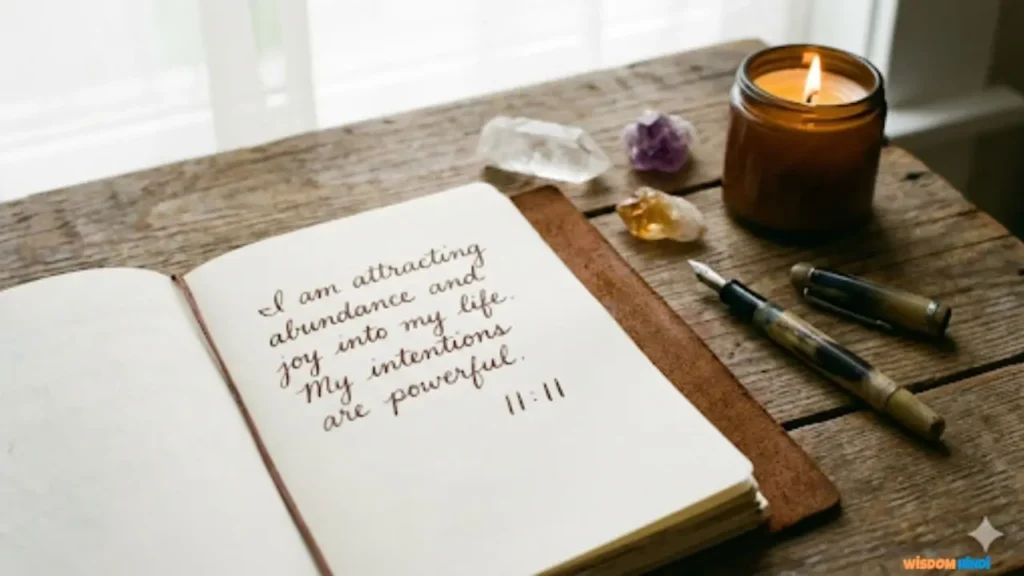 I am attracting
abundance and
joy into my life.
My intentions
are powerful.
11:11
WISDOM HINDI